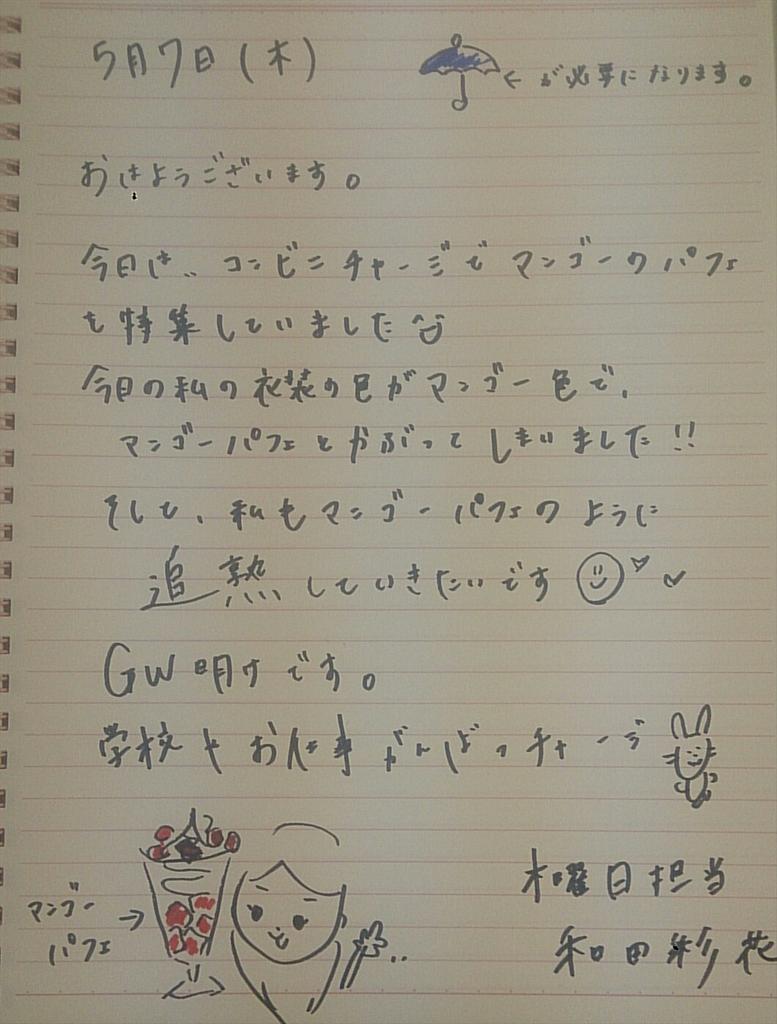 5月7日(木)
← が必要になります。
おはようございます。
今日は、、コンビニチャージでマンゴーのパフェ
を特集していました
今日の私の衣装の色がマンゴー色で、
マンゴーパフェとかぶってしまいました!!
そして、私もマンゴーパフェのように
追熟していきたいです
GW明けです。
学校やお仕事がんばっチャージ
マンゴー →
パフェ
木曜日担当
和田彩花